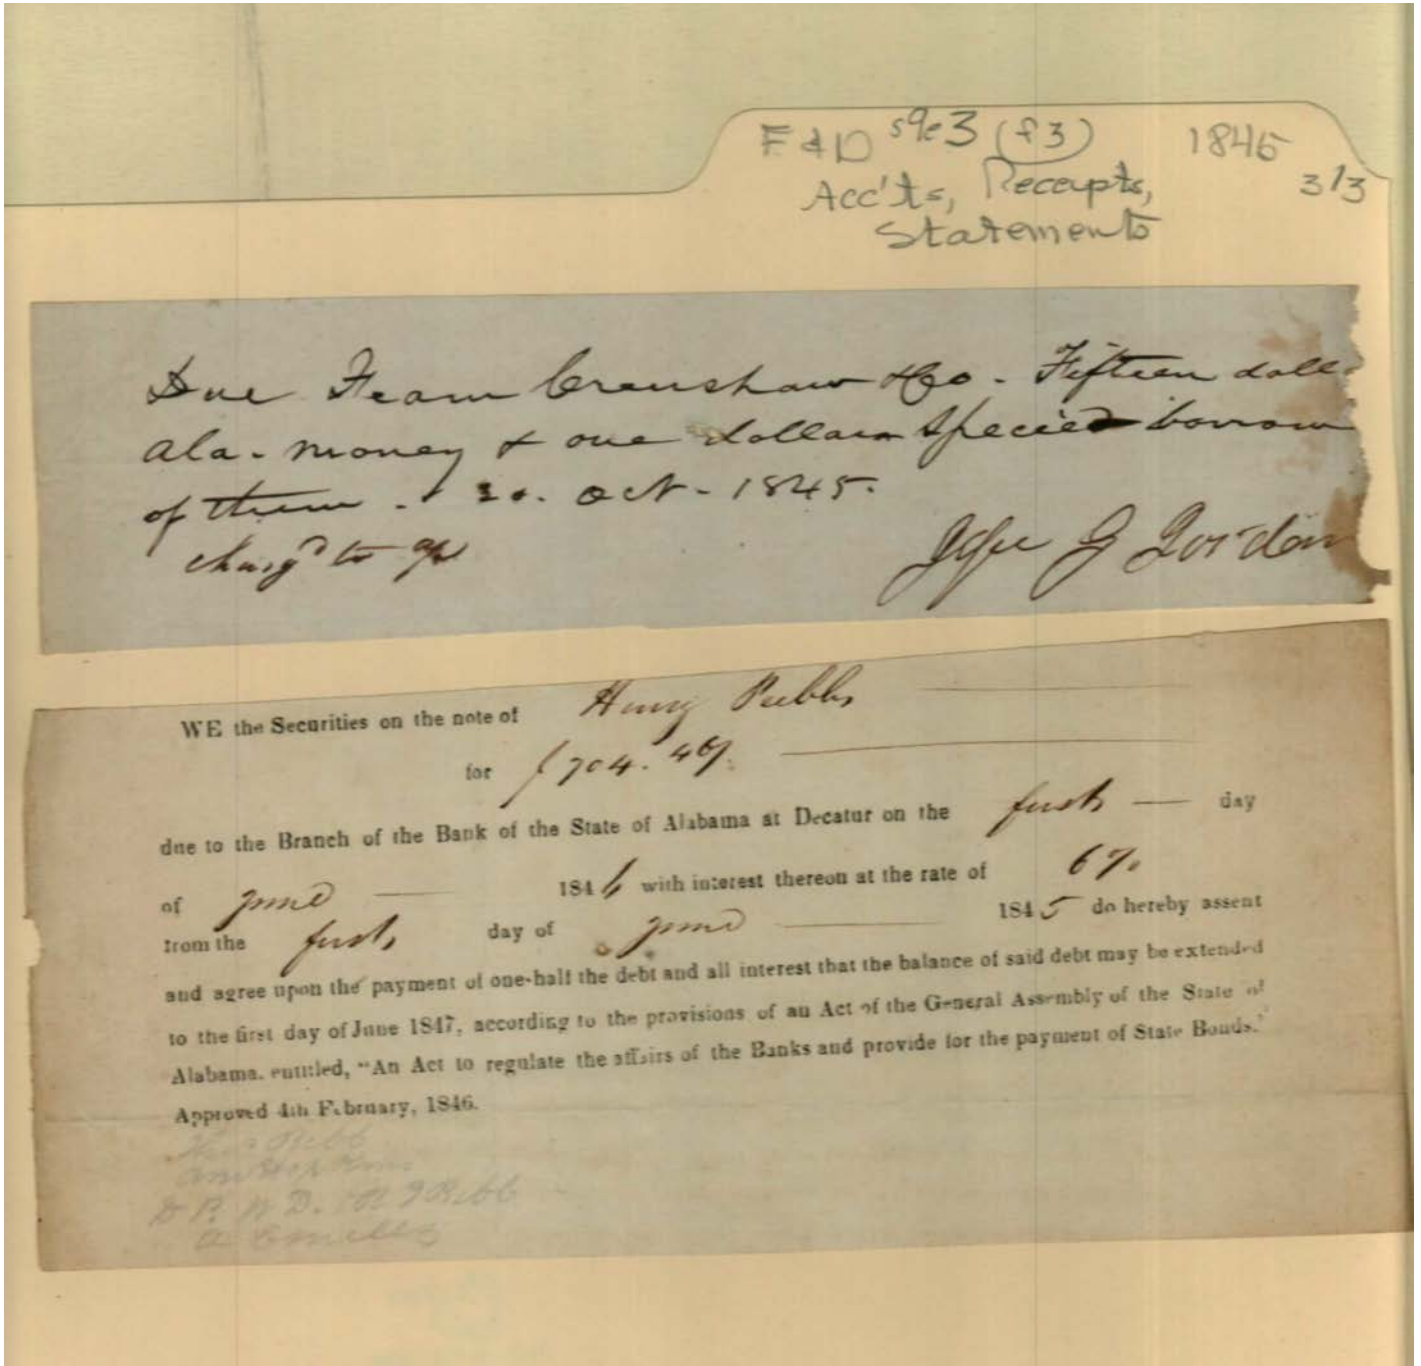 F & D s9e3 (f3) 1845
Acc'ts, Receipts, 3/3
Statements
Due Fearn Crenshaw & Co. Fifteen doll
Ala. money & one dollar Specie borrow
of them. 20. Oct. 1845.
Charg'd to a/c
G Jordan
WE the Securities on the note of Henry Peebles
for $704.49
due to the Branch of the Bank of the State of Alabama at Decatur on the first day
of June 1846 with interest thereon at the rate of 6%
from the first day of June 1845 do hereby assent
and agree upon the payment of one-half the debt and all interest that the balance of said debt may be extended
to the first day of June 1847, according to the provisions of an Act of the General Assembly of the State of
Alabama. entitled, "An Act to regulate the affairs of the Banks and provide for the payment of State Bonds."
Approved 4th February, 1846.
Bibb